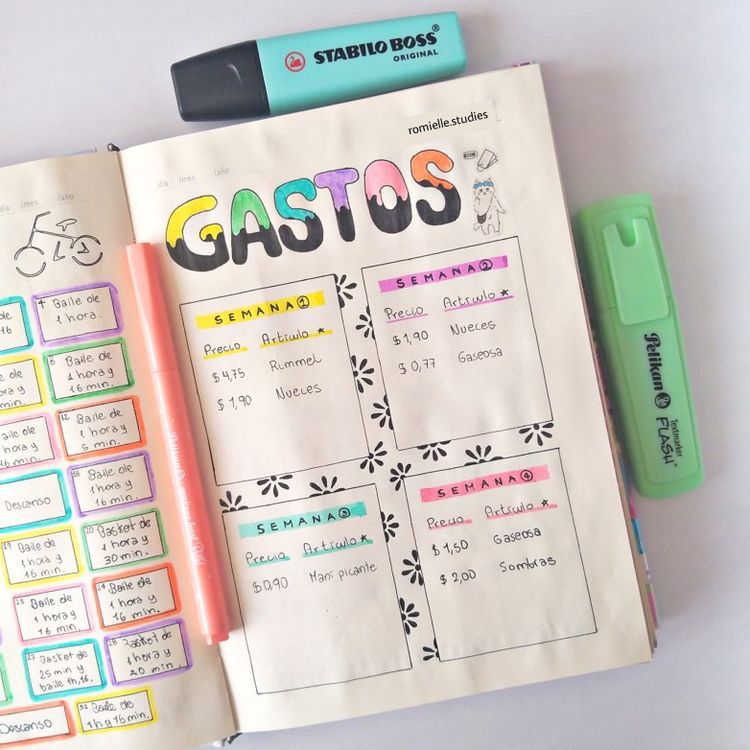 STABILO BOSS
ORIGINAL
romielle.studies
día mes año
GASTOS
SEMANA 1
Precio Artículo ★
$ 4,75 Rimmel
$ 1,90 Nueces
SEMANA 2
Precio Artículo ★
$ 1,90 Nueces
$ 0,77 Gaseosa
SEMANA 3
Precio Artículo ★
$ 0,90 Maní picante
SEMANA 4
Precio Artículo ★
$ 1,50 Gaseosa
$ 2,00 Sombras
Pelikan
Textmarker
FLASH
día mes año
4 Baile de
1 hora.
6 Baile de
1 hora y
16 min.
12 Baile de
1 hora y
5 min.
16 Baile de
1 hora y
16 min.
Descanso
20 Basket de
1 hora y
30 min.
19 Baile de
1 hora y
16 min.
24 Baile de
1 hora y
16 min.
23 Baile de
1 hora y
16 min.
28 Basket de
1 hora y
20 min.
27 Basket de
25 min y
baile 1h,16.
31 Baile de
1h y 16 min.
Descanso